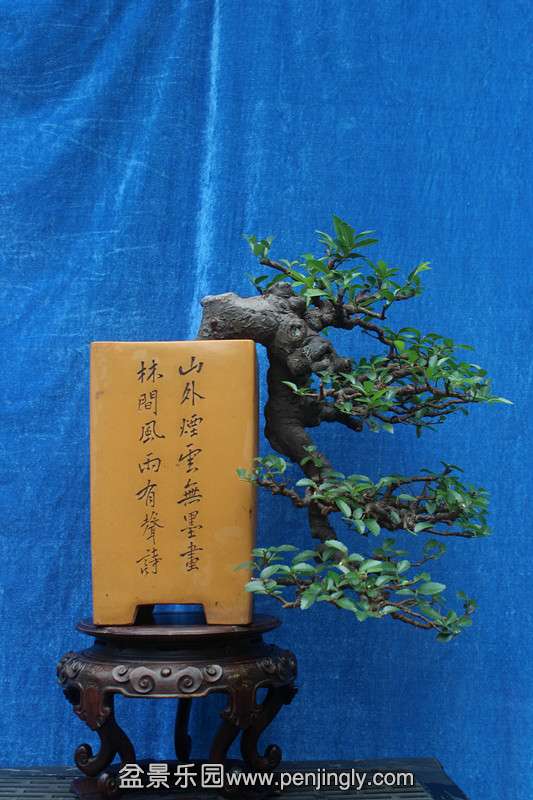 山外煙雲無墨畫
林間風雨有聲詩
盆景乐园www.penjingly.com